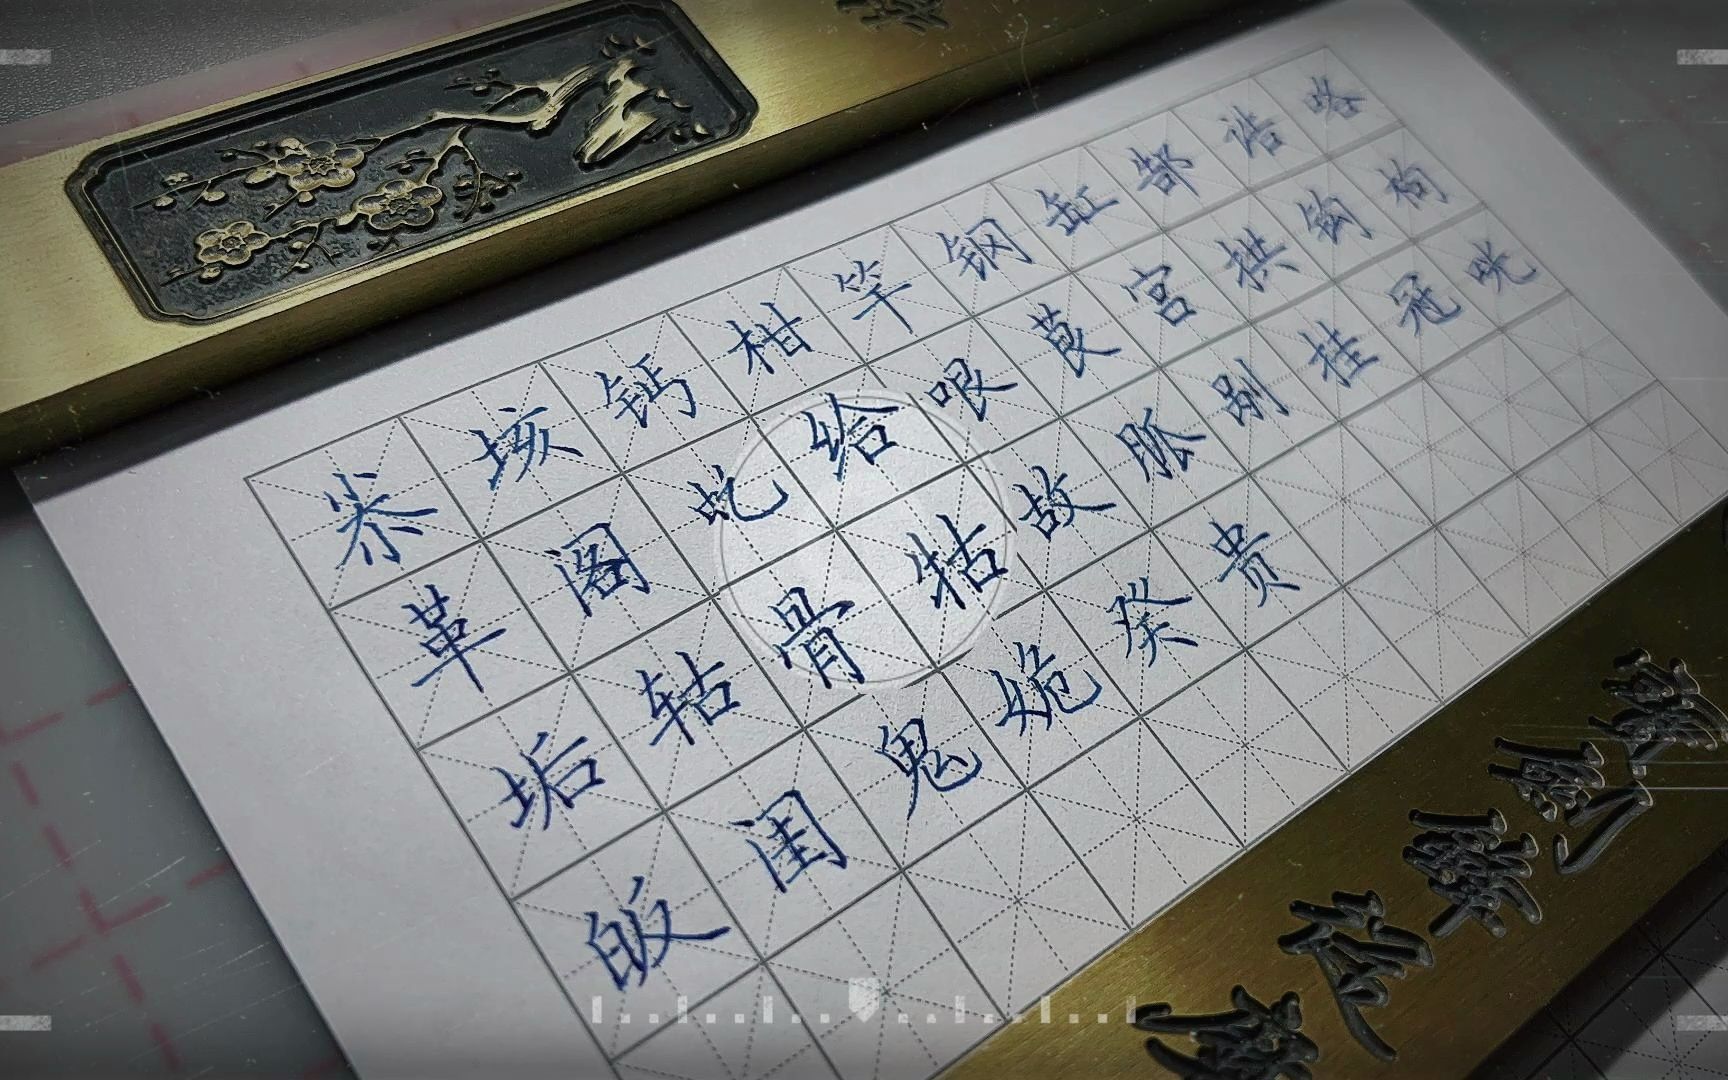 尜垓钙柑竿钢缸郜诰咯
革阁虼给哏茛宫拱钩枸
垢轱骨牯故胍剐挂冠咣
皈闺鬼姽癸贵